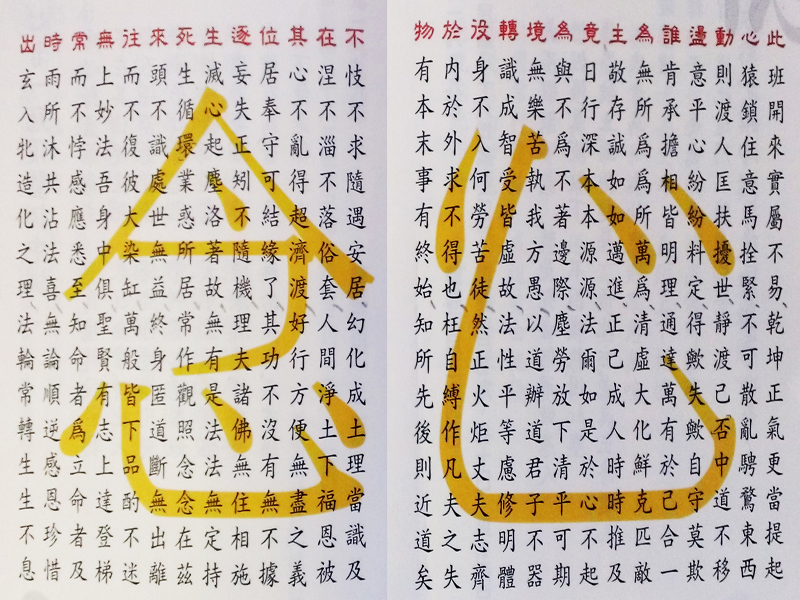 此班開來實屬不易乾坤正氣更當提起
心猿鎖住意馬拴緊不可散亂騁鶩東西
動則渡人匡扶擾世靜渡己否中道不移
盪意平心紛紛料定得歟失歟自守莫欺
誰肯承擔相皆明理通達萬有於己合一
為無所為為所萬為清虛大化鮮克匹敵
主敬存誠如如邁進正己成人時時推及
竟日行深本本源源法爾如是於心不起
為與不為不著邊際塵勞放下清平可期
境無樂苦執我方愚以道辦道君子不器
轉識成智受皆虛故法性平等慮修明體
役身不入何勞苦徒然正火炬丈夫志齊
於內於外求不得也枉自縛作凡夫之失
物有本末事有終始知所先後則近道矣
不忮不求隨遇安居幻化成土理當識及
在涅不淄不落俗套人間淨土下福恩被
其心不亂得超濟渡好行方便無盡之義
位居奉守可結緣了其功不沒有無不據
逐妄失正矧不隨機理夫諸佛無住相施
生滅心起塵洛著故無有是法法無定持
死生循環業惑所居常作觀照念念在茲
來頭不識處世無益終身匿道斷無出離
往而不復彼大染缸萬般皆下品酌不迷
無上妙法吾身中俱聖賢有志上達登梯
常而不悖感應悉至知命者為立命者及
時雨所沐共沾法喜無論順逆感恩珍惜
出玄入牝造化之理法輪常轉生生不息
心
念